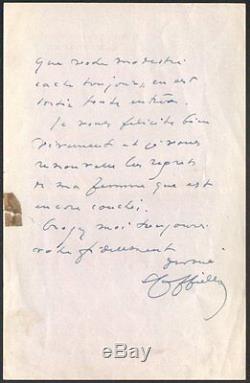 que votre modestie
cache toujours, en est
sortie toute entière.
Je vous félicite bien
vivement et je vous
renouvelle les regrets
de ma femme que est
encore couchée.
Croyez moi toujours
votre fidèlement